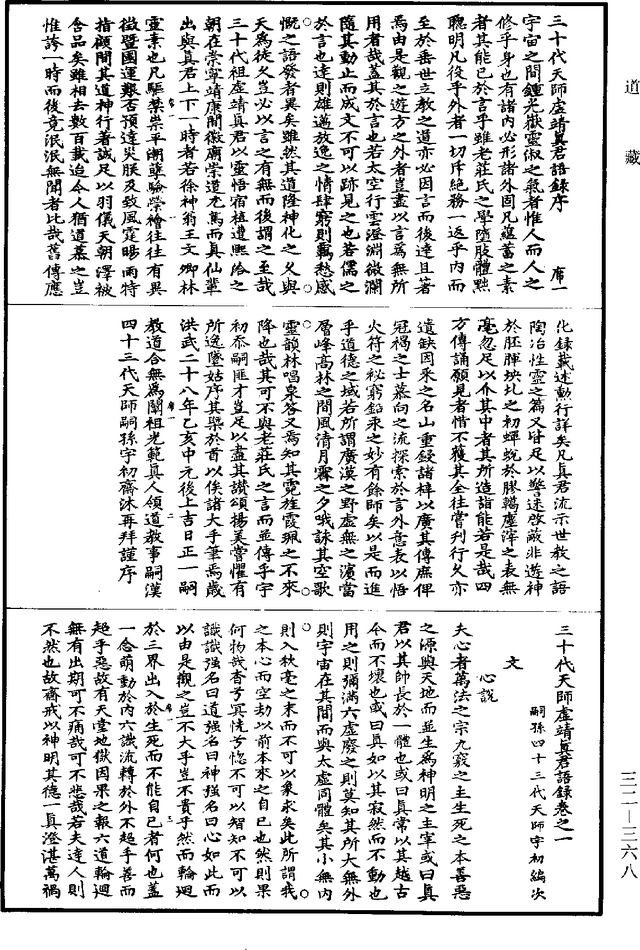 道藏
三十代天師虛靖真君語錄序
序一
宇宙之間鍾光嶽靈淑之氣者惟人而人之
修乎身也有諸內必形諸外固凡蘊蓄之素
者其能已於言乎雖老莊氏之學墮肢體黜
聰明凡役乎外者一切斥絕務一返乎內而
至於垂世立教之道亦必因言而後達且著
焉由是觀之遊方之外者豈盡以言為無所
用者哉蓋其於言也若太空行雲澄淵微瀾
隨其動止而成文不可以跡見之也若儒之
於言也達則雄邁放逸之情肆窮則羈愁感
慨之語發者異矣雖然其道隆神化之久與
天為徒久豈必以言之有無而後謂之至哉
三十代祖虛靖真君以靈悟宿植遭熙洽之
朝在崇寧靖康間徽廟崇道尤篤而真仙輩
出與真君上下一時者若徐神翁王文卿林
靈素也凡驅禁祟平潮孽驗禜禬往往有異
徵暨國運艱否預達災朕及致風霆暘雨特
指顧間其道神行著誠足以羽儀天朝澤被
含品矣雖相去數百載迨今人猶道慕之豈
惟誇一時而後竟泯泯無聞者比哉舊傳應
化錄載述勳行詳矣凡真君流示世教之語
陶冶性靈之篇又皆足以警迷啟蔽非遊神
於胚腪坱圠之初蟬蛻於膠轕塵滓之表無
毫忽足以介其中者其所造詣能若是哉四
方傳誦願見者惜不獲其全往嘗刊行久亦
遺缺因采之名山重錄諸梓以廣其傳庶俾
冠褐之士慕向之流探索於言外意表以悟
火符之秘窮鉛汞之妙有餘師矣以是而進
乎道德之域若所謂廣漠之野虛無之濱當
層峰高林之間風清月霽之夕哦詠其空歌
靈韻林唱泉答又焉知其霓旌霞珮之不來
降也哉其可不與老莊氏之言而並傳乎宇
初忝嗣匪才豈足以盡其讚頌揚美嘗懼有
所逸墜姑序其槩於首以俟諸大手筆焉歲
洪武二十八年乙亥中元後上吉日正一嗣
教道合無為闡祖光範真人領道教事嗣漢
四十三代天師嗣孫宇初齋沐再拜謹序
三十代天師虛靖真君語錄卷之一
嗣孫四十三代天師宇初編次
文
心說
夫心者萬法之宗九竅之主生死之本善惡
之源與天地而並生為神明之主宰或曰真
君以其帥長於一體也或曰真常以其越古
今而不壞也或曰真如以其寂然而不動也
用之則彌滿六虛廢之則莫知其所大無外
則宇宙在其間而與太虛同體矣其小無內
則入秋毫之末而不可以象求矣此所謂我
之本心而空劫以前本來之自己也然則果
何物哉杳兮冥恍兮惚不可以智知不可以
識識強名曰道強名曰神強名曰心如此而
以由是觀之豈不大乎豈不貴乎然而輪迴
於三界出入於生死而不能自已者何也蓋
一念萌動於內六識流轉於外不趨乎善而
趨乎惡故有天堂地獄因果之報六道輪迴
無有出期可不痛哉可不悲哉若夫達人則
不然也故齋戒以神明其德一真澄湛萬禍
三二—三六八